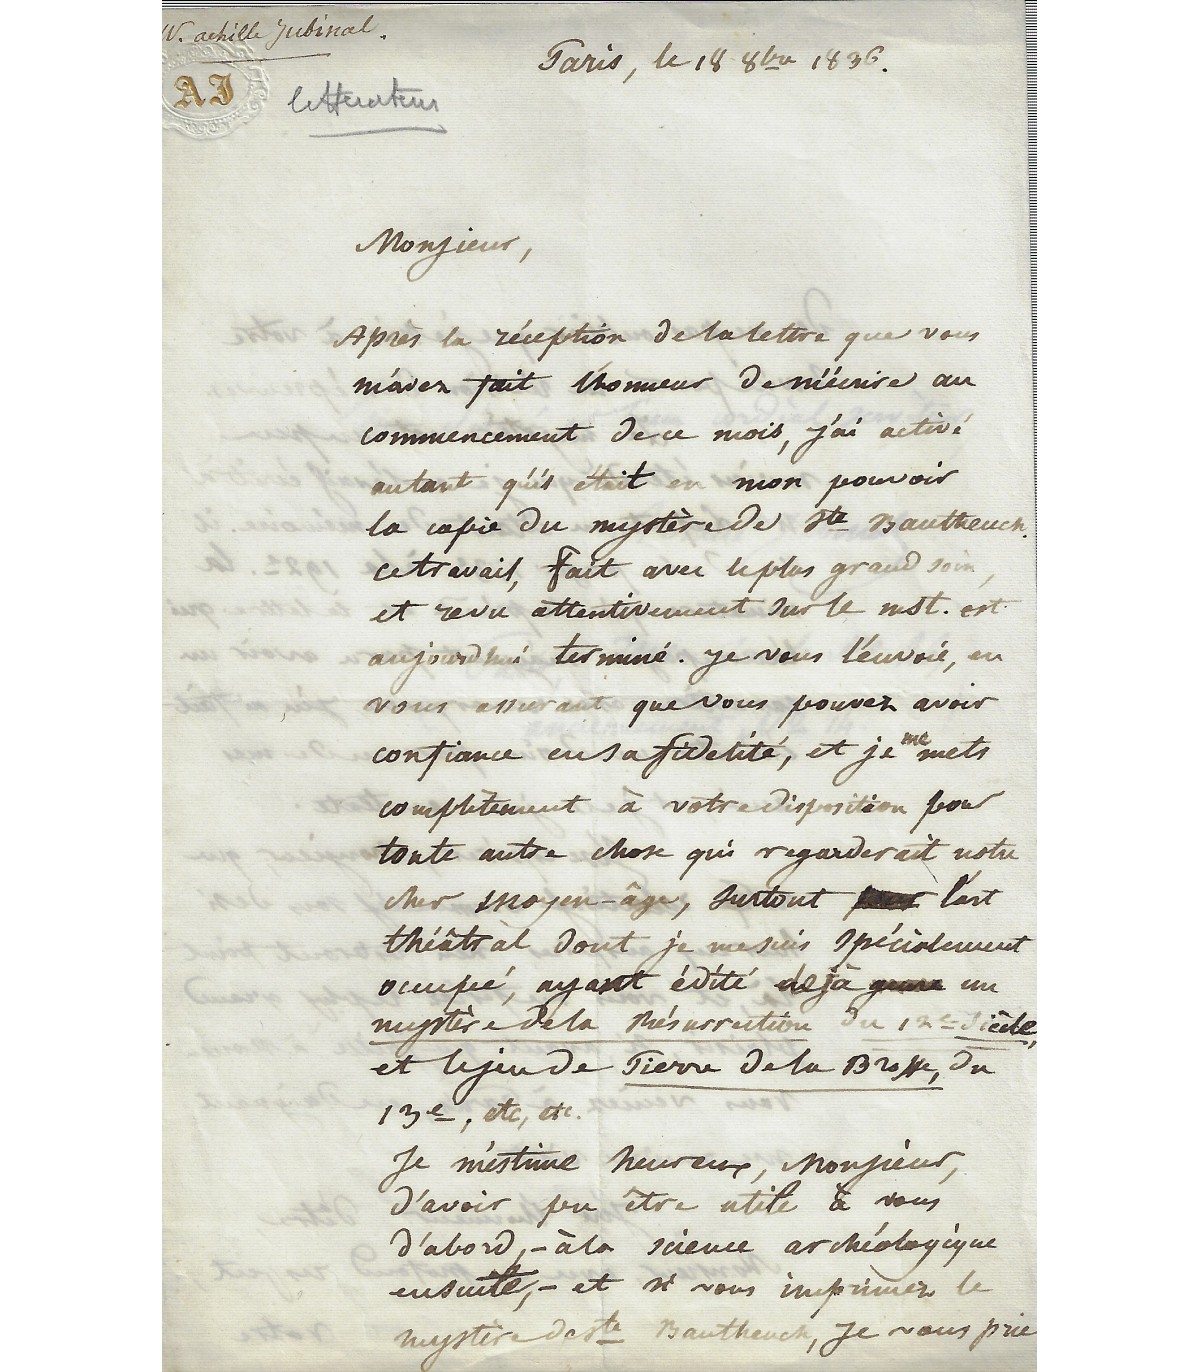 W. achille Jubinal.
AJ
littérateur
Paris, le 18 8bre 1836.
Monsieur,
Après la réception de la lettre que vous
m'avez fait l'honneur de m'écrire au
commencement de ce mois, j'ai activé
autant qu'il était en mon pouvoir
la copie du mystère de Ste Bautheuch.
ce travail, fait avec le plus grand soin,
et revu attentivement sur le mst. est
aujourd'hui terminé. Je vous l'envoie, en
vous assurant que vous pouvez avoir
confiance en sa fidélité, et je me mets
complètement à votre disposition pour
toute autre chose qui regarderait notre
cher moyen-âge, surtout l'art
théâtral dont je me suis spécialement
occupé, ayant édité déjà un
mystère de la Résurrection du 12e siècle,
et le jeu de Pierre de la Brosse, du
13e, etc, etc.
Je m'estime heureux, Monsieur,
d'avoir pu être utile à vous
d'abord, - à la science archéologique
ensuite, - et si vous imprimez le
mystère de Ste Bautheuch, je vous prie